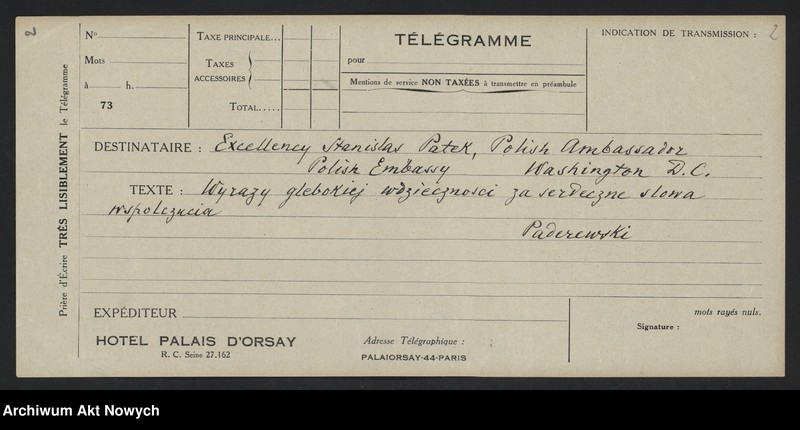 2
Nº
Mots
à h.
73
TAXE PRINCIPALE...
TAXES ACCESSOIRES
TOTAL.....
TÉLÉGRAMME
pour
Mentions de service NON TAXÉES à transmettre en préambule
INDICATION DE TRANSMISSION : 2
Prière d'Écrire TRÈS LISIBLEMENT le Télégramme
DESTINATAIRE : Excellency Stanislas Patek, Polish Ambassador
Polish Embassy Washington D.C.
TEXTE : Wyrazy glebokiej wdziecznosci za serdeczne slowa
wspolczucia
Paderewski
EXPÉDITEUR
HOTEL PALAIS D'ORSAY
R. C. Seine 27.162
Adresse Télégraphique :
PALAIORSAY-44-PARIS
mots rayés nuls.
Signature :
Archiwum Akt Nowych